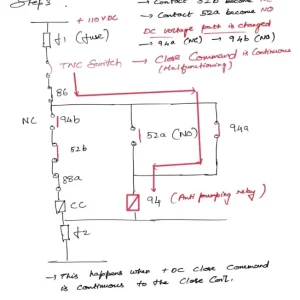 Step3
→ Contact 52b become NC
→ Contact 52a become NO
DC voltage path is changed
→ 94a (NC) → 94b (NO)
+ 110V DC
f1 (fuse)
TNC Switch → Close Command is Continuous
(Malfunctioning)
86
NC
94b
52a (NO)
94a
52b
88a
CC
94 (Anti pumping relay)
f2
→ This happens when + DC Close Command
is continuous to the Close Coil.